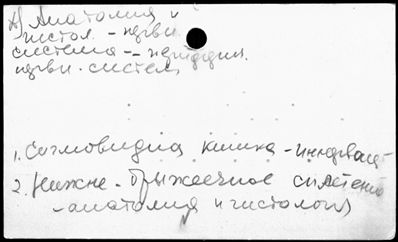 А) Анатомия и
гистол. - нервн.
система -- перифирич.
нервн. систем
1. Сигмовидна кишка - иннервац
2. Нижне-брыжеечное сплетение
- анатомия и гистология